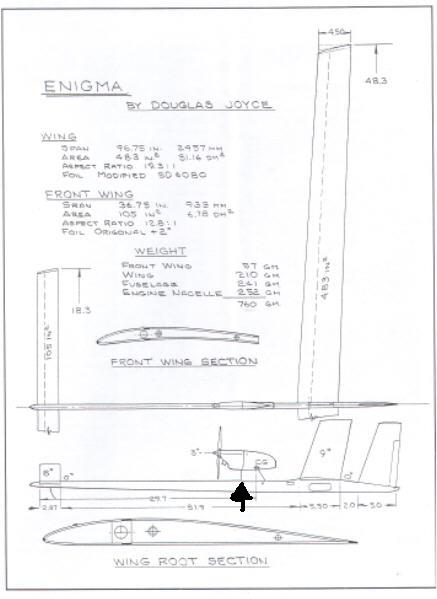 4.50
48.3
ENIGMA
BY DOUGLAS JOYCE
WING
SPAN 96.75 IN. 2457 MM
AREA 483 IN² 31.16 DM²
ASPECT RATIO 19.3:1
FOIL MODIFIED SD6080
FRONT WING
SPAN 36.75 IN. 933 MM
AREA 105 IN² 6.78 DM²
ASPECT RATIO 12.8:1
FOIL ORIGONAL +2°
WEIGHT
FRONT WING 57 GM
WING 210 GM
FUSELAGE 241 GM
ENGINE NACELLE 252 GM
760 GM
18.3
483 IN²
105 IN²
FRONT WING SECTION
3°
CG
9°
0°
8°
0°
29.7
2.87
51.9
5.50
2.0
5.0
WING ROOT SECTION